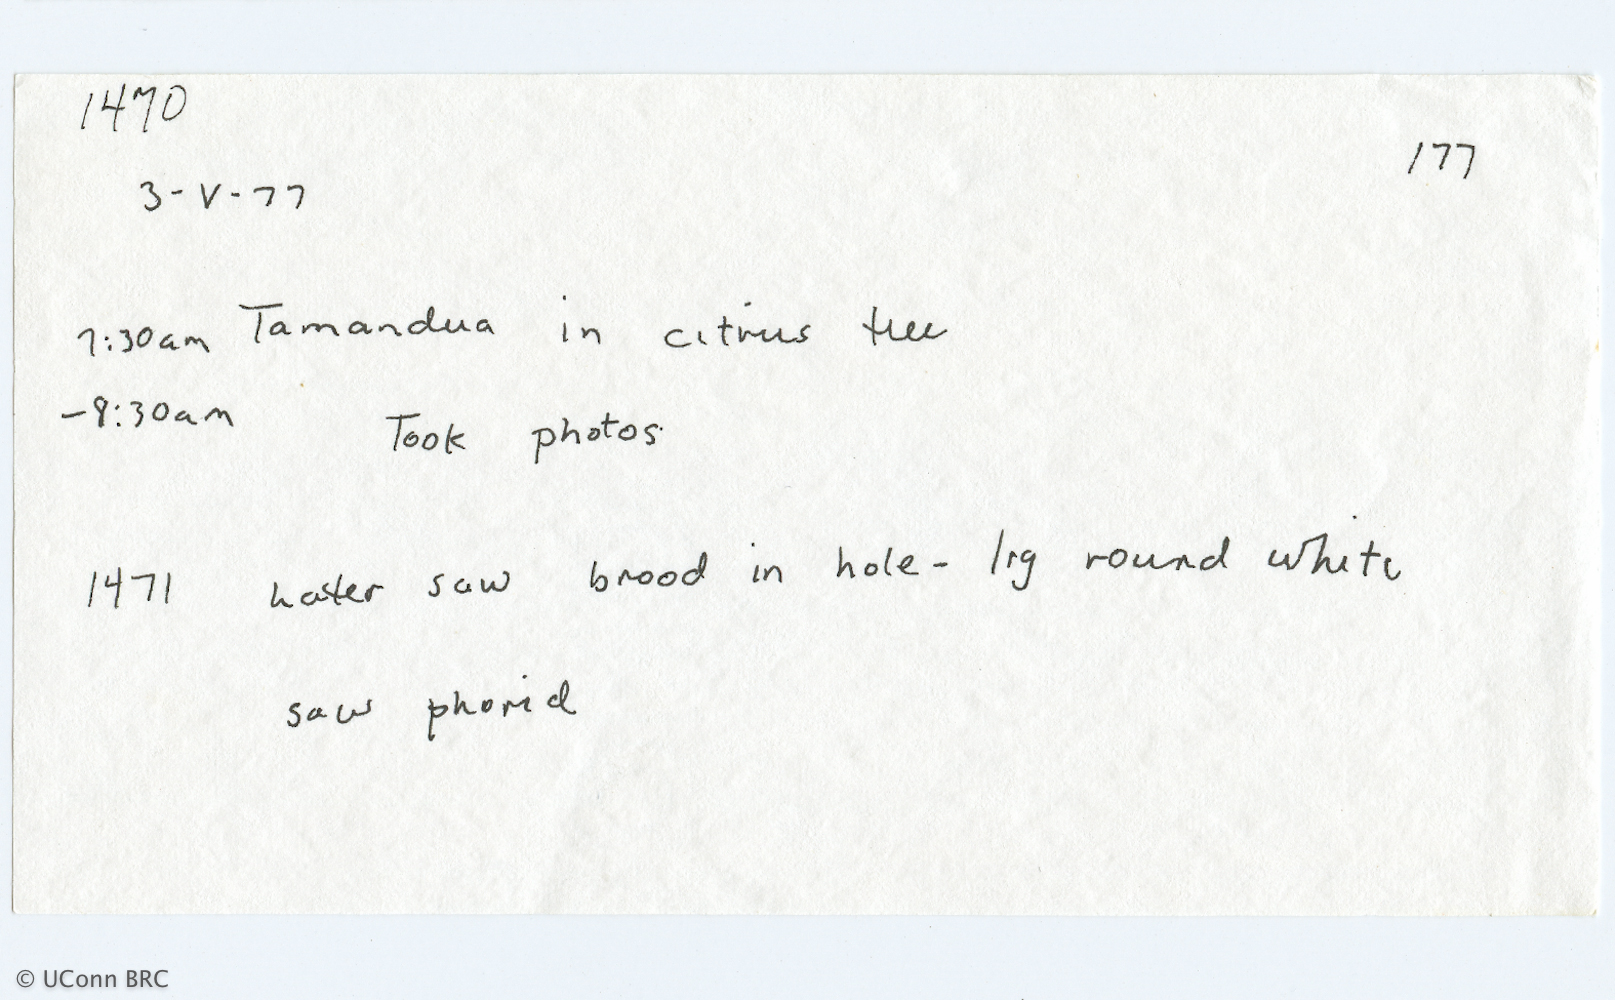 1470
177
3-V-77
7:30am Tamandua in citrus tree
-8:30am Took photos
1471 Later saw brood in hole - lrg round white
saw phorid
© UConn BRC